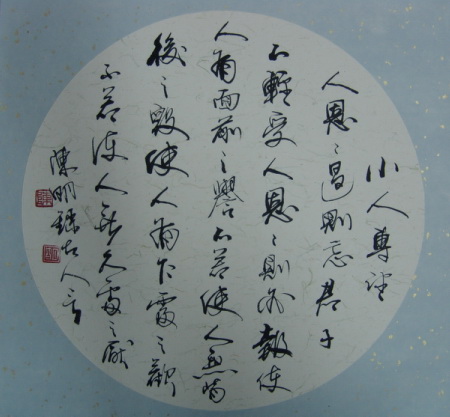 小人專望
人恩〻過則忘君子
不輕受人恩〻則必報使
人有面前之譽不若使人無背
後之毀使人有乍處之歡
不若使人無久處之厭
陳明古人言